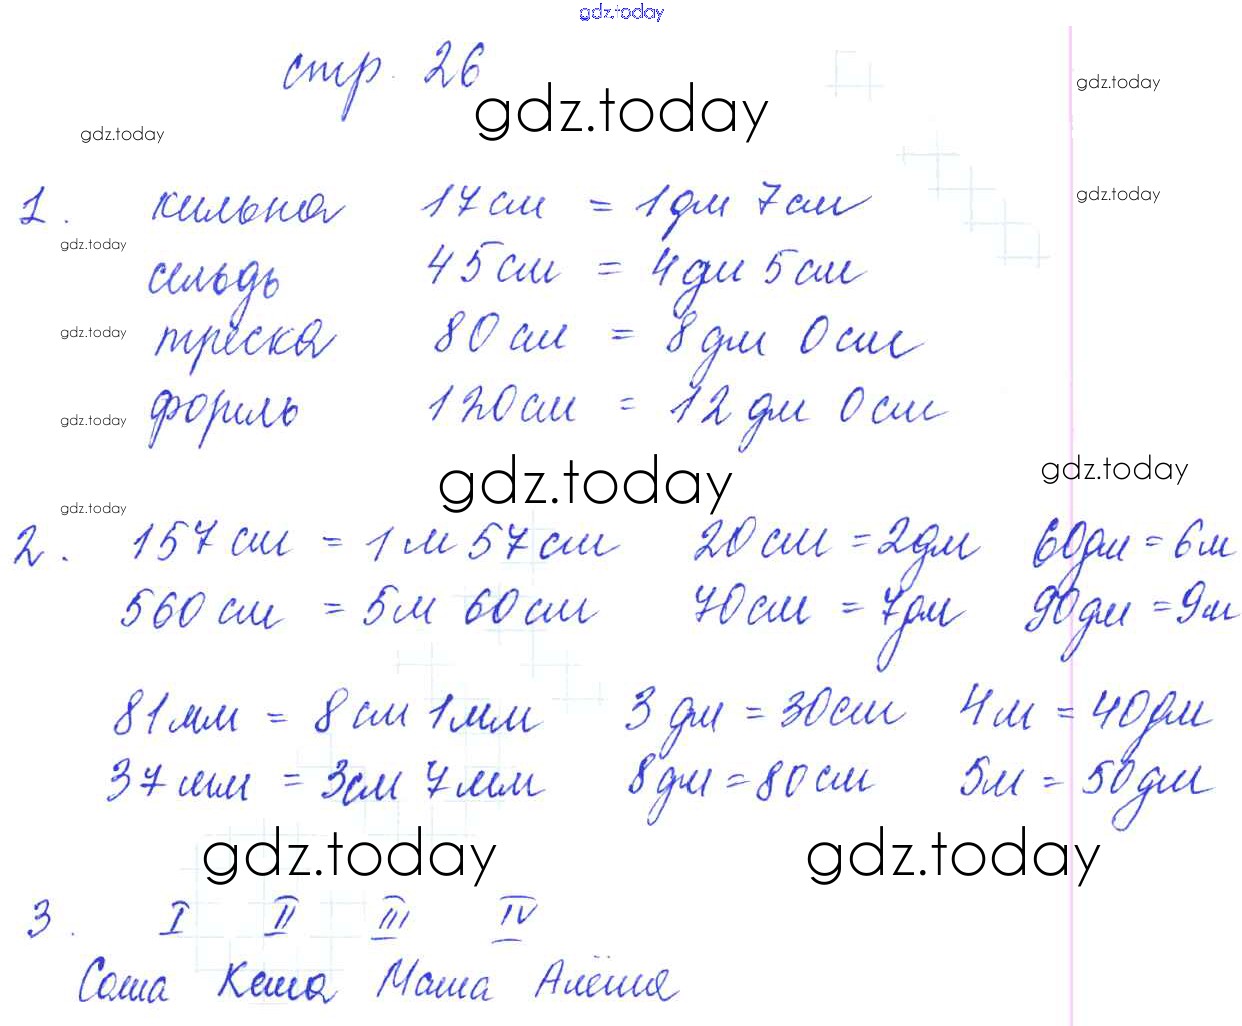 gdz.today
стр. 26
gdz.today
gdz.today
gdz.today
1. килька 17 см = 1 дм 7 см
gdz.today
gdz.today
сельдь 45 см = 4 дм 5 см
gdz.today
треска 80 см = 8 дм 0 см
форель 120 см = 12 дм 0 см
gdz.today
gdz.today
gdz.today
gdz.today
2. 157 см = 1 м 57 см 20 см = 2 дм 60 дм = 6 м
560 см = 5 м 60 см 70 см = 7 дм 90 дм = 9 м
81 мм = 8 см 1 мм 3 дм = 30 см 4 м = 40 дм
37 мм = 3 см 7 мм 8 дм = 80 см 5 м = 50 дм
gdz.today gdz.today
3. I II III IV
Саша Кеша Маша Алёша